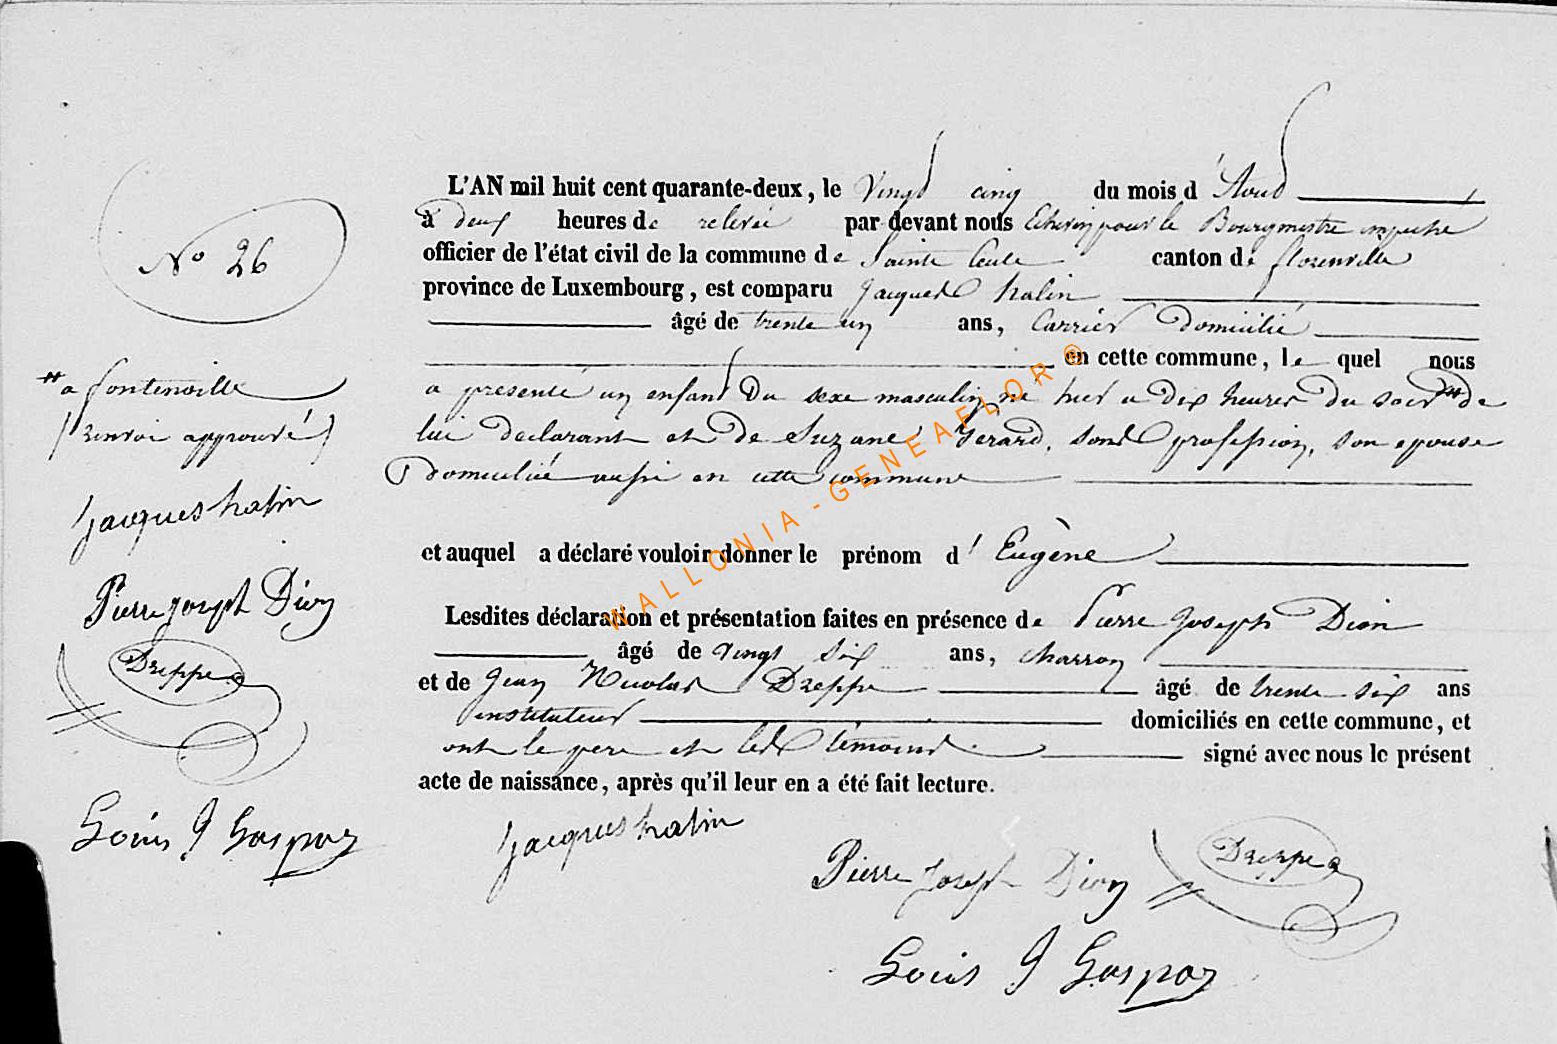 N° 26
L'AN mil huit cent quarante-deux, le Vingt cinq du mois d'Aout
à deux heures de relevée par devant nous Echevin pour le Bourgmestre empeché
officier de l'état civil de la commune de Sainte Cecile canton de florenville
province de Luxembourg, est comparu Jacques halin
âgé de trente un ans, Carrier domicilié
en cette commune, le quel nous
a présenté un enfant du sexe masculin, né hier a dix heures du soir # de
lui declarant et de Suzane Gerard, sans profession, son epouse
domiciliée aussi en cette commune
et auquel a déclaré vouloir donner le prénom d'Eugène
Lesdites déclaration et présentation faites en présence de Pierre Joseph Dion
âgé de vingt six ans, charron
et de Jean Nicolas Dreppe âgé de trente six ans
instituteur domiciliés en cette commune, et
ont le pere et les témoins signé avec nous le présent
acte de naissance, après qu'il leur en a été fait lecture.
Jacques halin
Pierre Joseph Dion
Dreppe
Louis J Gaspar
# a fontenoille
(renvoi approuvé)
Jacques halin
Pierre Joseph Dion
Dreppe
Louis J Gaspar
WALLONIA-GENEAFLOR®